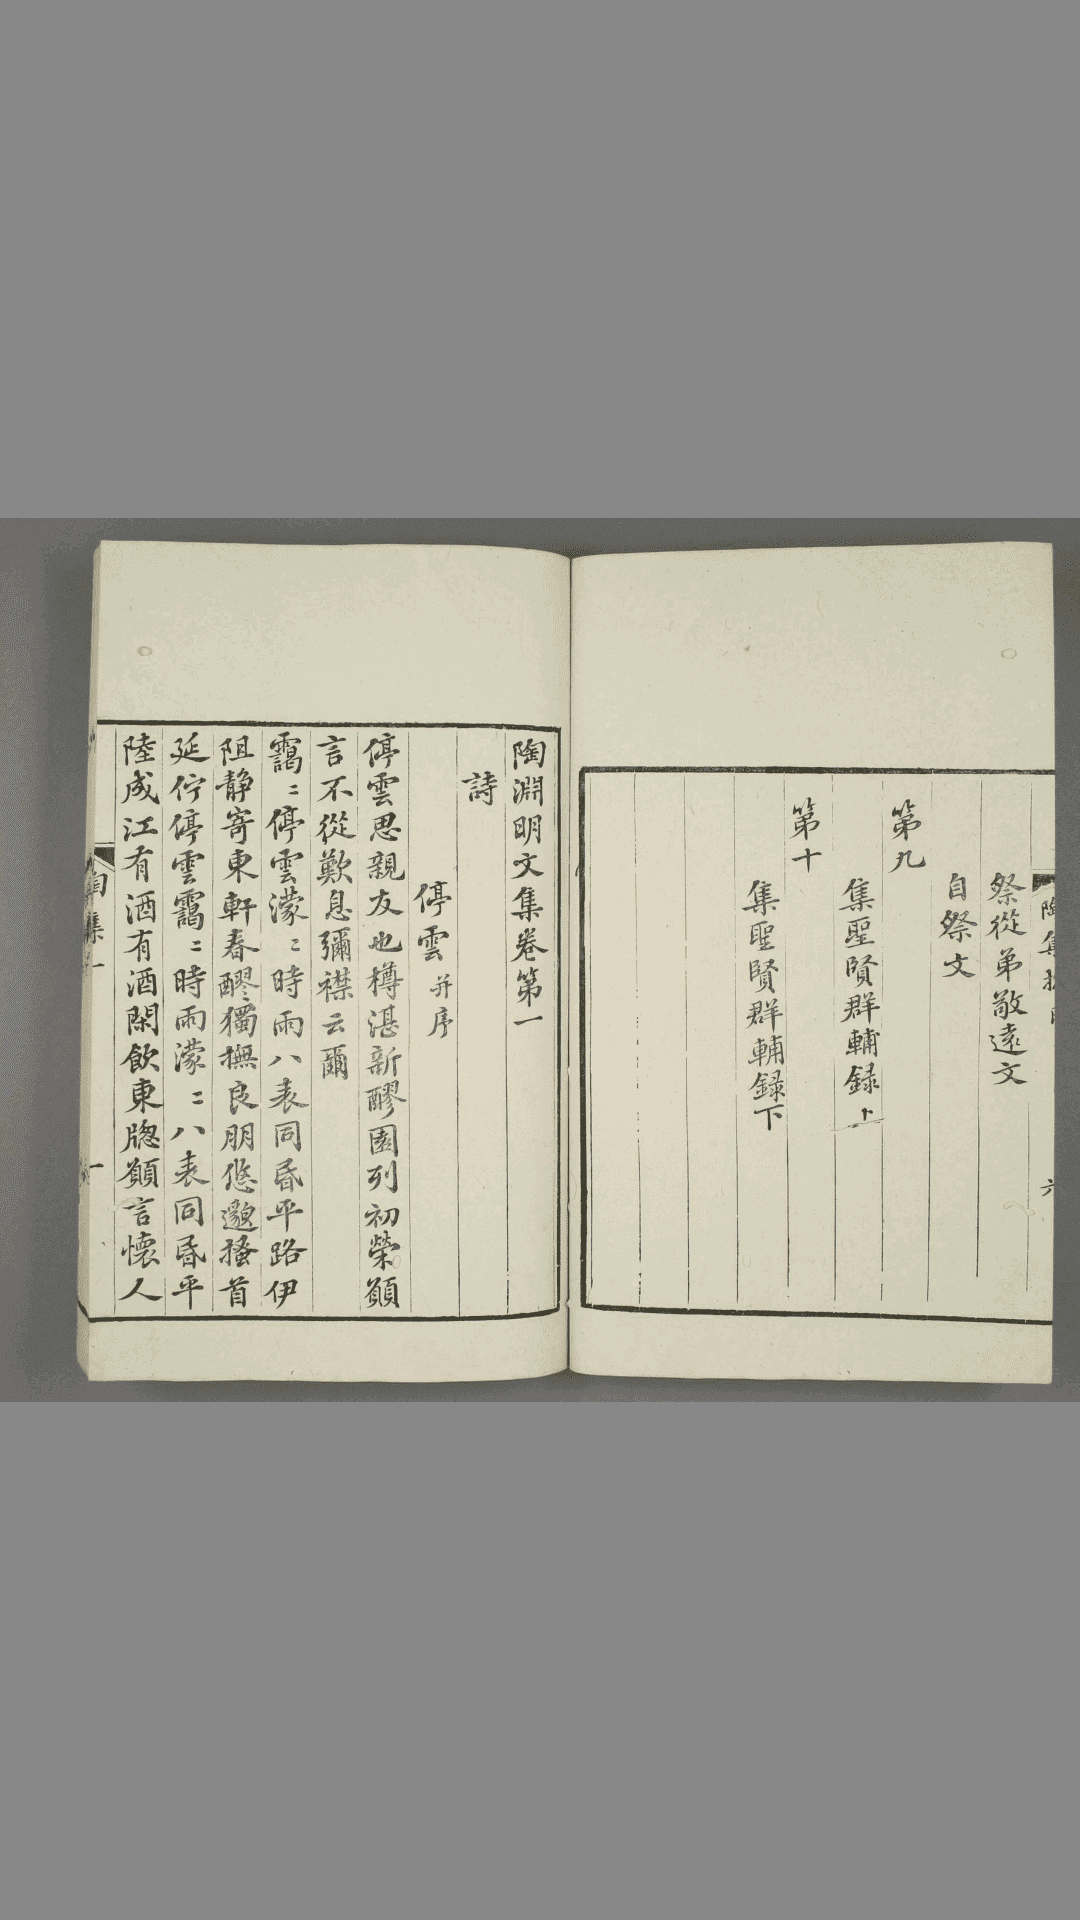 祭從弟敬遠文
自祭文
第九
集聖賢群輔録上
第十
集聖賢群輔録下
六
陶淵明文集卷第一
詩
停雲 并序
停雲思親友也樽湛新醪園列初榮願
言不從歎息彌襟云爾
靄〻停雲濛〻時雨八表同昏平路伊
阻静寄東軒春醪獨撫良朋悠邈搔首
延佇停雲靄〻時雨濛〻八表同昏平
陸成江有酒有酒閑飲東牕願言懷人
陶集一
一